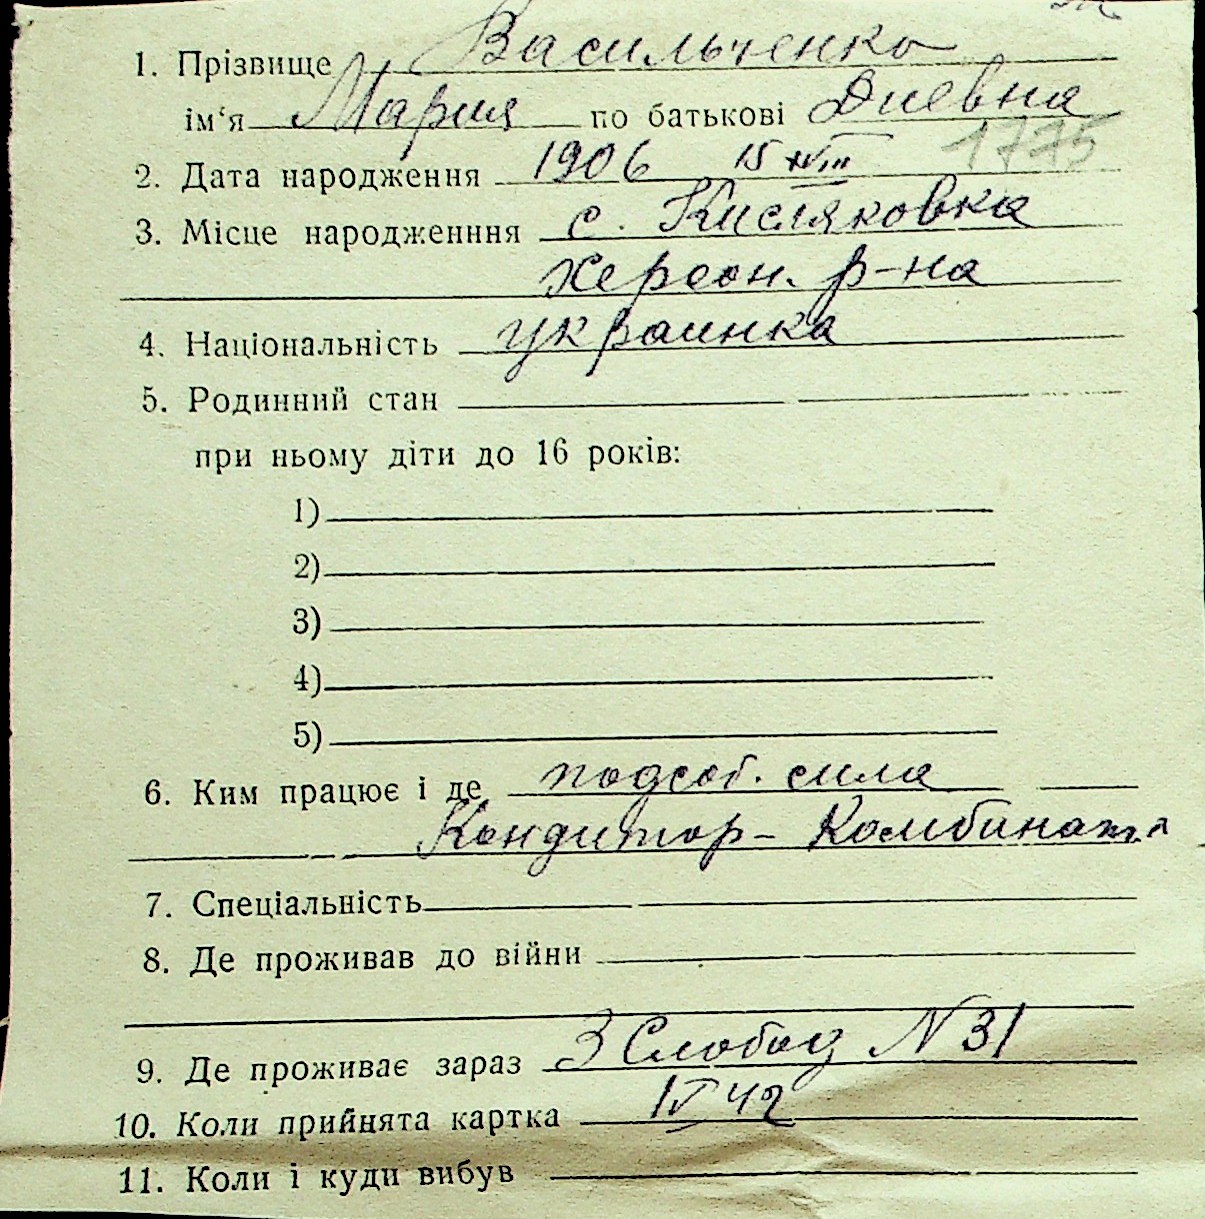 1. Прізвище Васильченко
ім'я Мария по батькові Дневна
1775
2. Дата народження 1906 15
3. Місце народженння с. Кисляковка
Херсон. р-на
4. Національність украинка
5. Родинний стан
при ньому діти до 16 років:
1)
2)
3)
4)
5)
6. Ким працює і де подсоб. сила
Кондитор- Комбината
7. Спеціальність
8. Де проживав до війни
9. Де проживає зараз 3 Слобод N 31
10. Коли прийнята картка IV 42
11. Коли і куди вибув